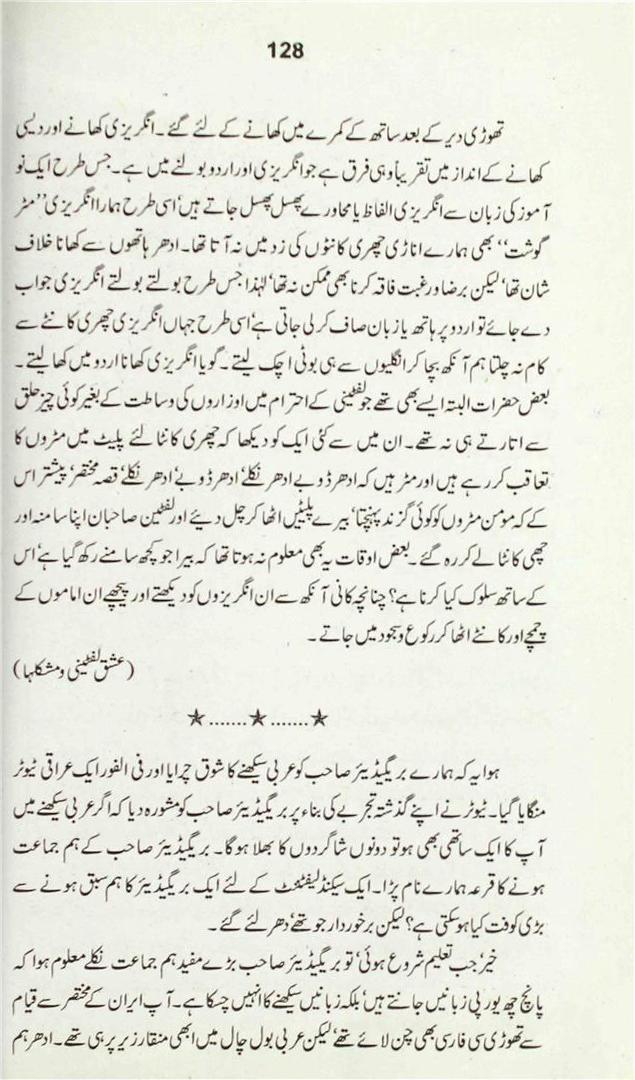 128
تھوڑی دیر کے بعد ساتھ کے کمرے میں کھانے کے لئے گئے۔ انگریزی کھانے اور دیسی
کھانے کے انداز میں تقریباً وہی فرق ہے جو انگریزی اور اردو بولنے میں ہے۔ جس طرح ایک نو
آموز کی زبان سے انگریزی الفاظ یا محاورے پھسل پھسل جاتے ہیں' اسی طرح ہمارا انگریزی ''مٹر
گوشت'' بھی ہمارے اناڑی چھری کانٹوں کی زد میں نہ آتا تھا۔ ادھر ہاتھوں سے کھانا خلاف
شان تھا' لیکن برضا و رغبت فاقہ کرنا بھی ممکن نہ تھا' لہٰذا جس طرح بولتے بولتے انگریزی جواب
دے جائے تو اردو پر ہاتھ یا زبان صاف کر لی جاتی ہے' اسی طرح جہاں انگریزی چھری کانٹے سے
کام نہ چلتا ہم آنکھ بچا کر انگلیوں سے ہی بوٹی اچک لیتے۔ گویا انگریزی کھانا اردو میں کھا لیتے۔
بعض حضرات البتہ ایسے بھی تھے جو لفٹینی کے احترام میں اوزاروں کی وساطت کے بغیر کوئی چیز حلق
سے اتارتے ہی نہ تھے۔ ان میں سے کئی ایک کو دیکھا کہ چھری کانٹا لئے پلیٹ میں مٹروں کا
تعاقب کر رہے ہیں اور مٹر ہیں کہ ادھر ڈوبے ادھر نکلے' ادھر ڈوبے' ادھر نکلے' قصہ مختصر' پیشتر اس
کے کہ مومن مٹروں کو کوئی گزند پہنچتا' بیرے پلیٹیں اٹھا کر چل دیئے اور لفٹین صاحبان اپنا سا منہ اور
چھی کانٹا لے کر رہ گئے۔ بعض اوقات یہ بھی معلوم نہ ہوتا تھا کہ بیرا جو کچھ سامنے رکھ گیا ہے' اس
کے ساتھ سلوک کیا کرنا ہے؟ چنانچہ کانی آنکھ سے ان انگریزوں کو دیکھتے اور پیچھے ان اماموں کے
چمچے اور کانٹے اٹھا کر رکوع و سجود میں جاتے۔
(عشق لفٹینی و مشکلہا)
★.......★.......★
ہوا یہ کہ ہمارے بریگیڈیئر صاحب کو عربی سیکھنے کا شوق چرایا اور فی الفور ایک عراقی ٹیوٹر
منگایا گیا۔ ٹیوٹر نے اپنے گذشتہ تجربے کی بناء پر بریگیڈیئر صاحب کو مشورہ دیا کہ اگر عربی سیکھنے میں
آپ کا ایک ساتھی بھی ہو تو دونوں شاگردوں کا بھلا ہوگا۔ بریگیڈیئر صاحب کے ہم جماعت
ہونے کا قرعہ ہمارے نام پڑا۔ ایک سیکنڈ لیفٹننٹ کے لئے ایک بریگیڈیئر کا ہم سبق ہونے سے
بڑی کوفت کیا ہو سکتی ہے؟ لیکن برخوردار جو تھے' دھر لئے گئے۔
خیر' جب تعلیم شروع ہوئی' تو بریگیڈیئر صاحب بڑے مفید ہم جماعت نکلے معلوم ہوا کہ
پانچ چھ یورپی زبانیں جانتے ہیں' بلکہ زبانیں سیکھنے کا انہیں چسکا ہے۔ آپ ایران کے مختصر سے قیام
سے تھوڑی سی فارسی بھی چن لائے تھے' لیکن عربی بول چال میں ابھی منقار زیر پر ہی تھے۔ ادھر ہم